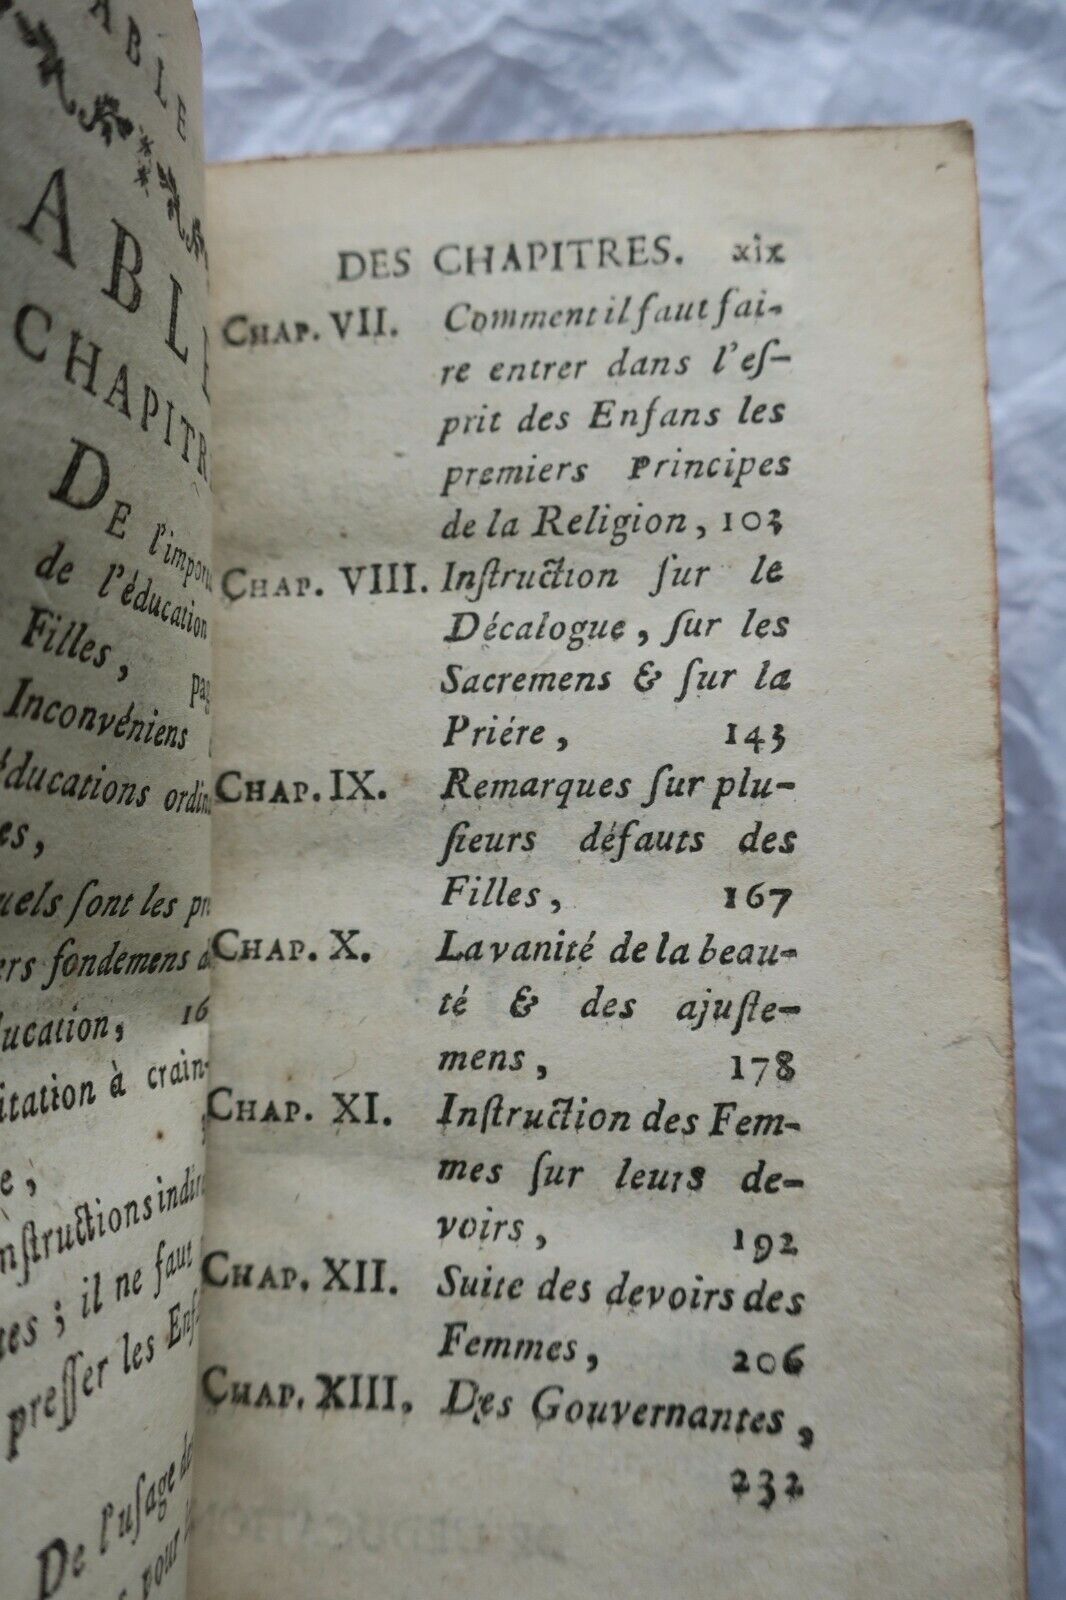 ABLE
ABLE
CHAPITR
DE l'import
de l'éducation
Filles, pag
Inconvéniens
éducations ordin
es,
uels ſont les pr
ers fondemens d
ducation, 16
itation à crain-
e,
nſtructions indir
es ; il ne faut
preſſer les Enf
De l'uſage de
pour
DES CHAPITRES. xix
CHAP. VII. Comment il faut fai-
re entrer dans l'eſ-
prit des Enfans les
premiers Principes
de la Religion, 103
CHAP. VIII. Inſtruction ſur le
Décalogue, ſur les
Sacremens & ſur la
Priére, 143
CHAP. IX. Remarques ſur plu-
ſieurs défauts des
Filles, 167
CHAP. X. La vanité de la beau-
té & des ajuſte-
mens, 178
CHAP. XI. Inſtruction des Fem-
mes ſur leurs de-
voirs, 192
CHAP. XII. Suite des devoirs des
Femmes, 206
CHAP. XIII. Des Gouvernantes,
232